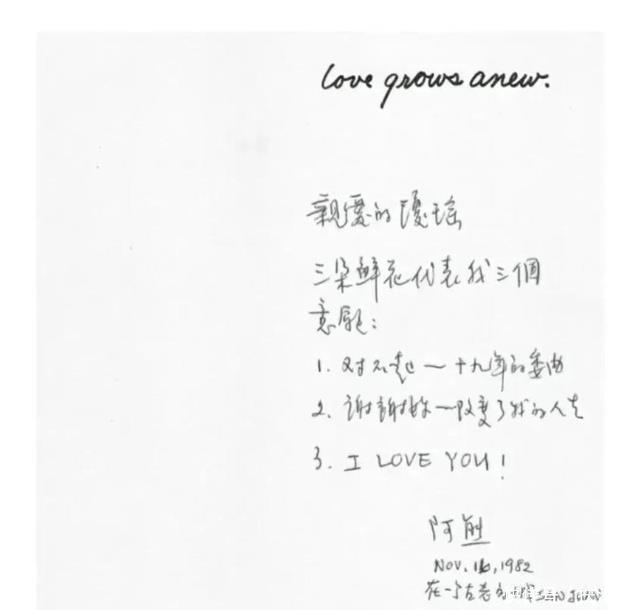 love grows anew.
親愛的瓊瑤
三朵鮮花代表我三個
意願：
1. 对不起一十九年的委曲
2. 謝謝妳一改變了我的人生
3. I LOVE YOU!
阿
Nov. 16, 1982
在一个古老的 SAN JUAN